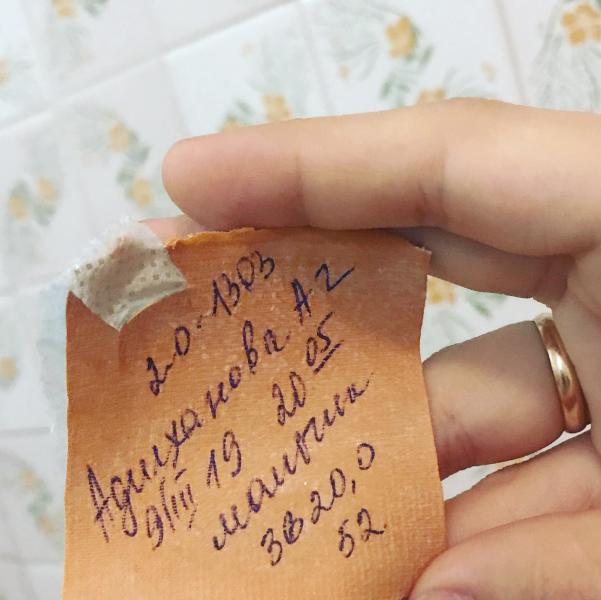 20.1303
Адиханова А Z
9/III 19 20 05
мальчик
3820,0
52